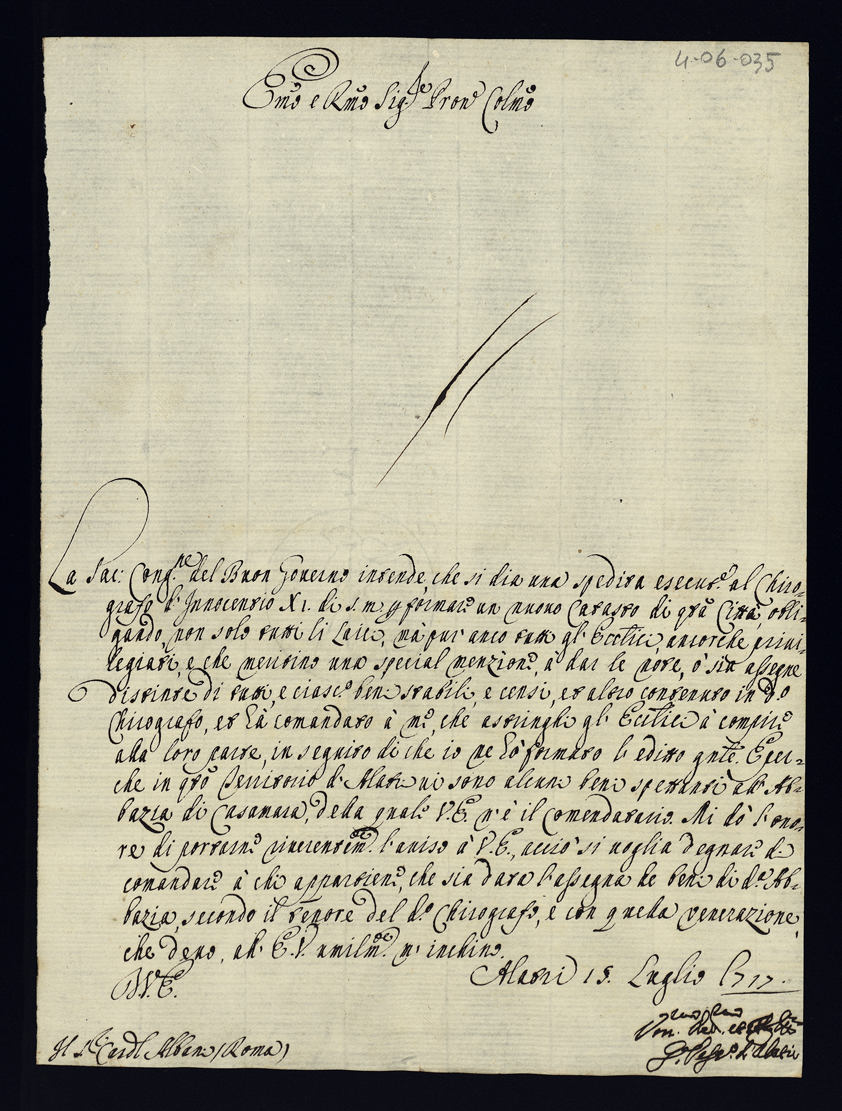 4-06-035
Em̃o e Rm̃o Sig.re Pron̄e Colm̃o
La Sac: Cong.ne del Buon Governo intende, che si dia una spedita esecuz.e al Chiro-
grafo d'Innocentio XI. di s. m. p formare un nuovo Catasto di q̃ta Città, obli-
gando, non solo tutti li Laici, mà pur'anco tutti gl'Eccl̃ici, ancorche privi-
legiati, e che meritino una special menzione, à dar le note, ò sia assegne
distinte di tutti, e ciasc.o beni stabili, e censi, et altro contenuto in d.o
Chirografo, et hà comandato à me, che astringhi gl'Eccl̃ici à compire
alla loro parte, in seguito di che io ne hò formato l'editto gñte. E per-
che in q̃to Territorio d'Alatri vi sono alcuni beni spettanti all'Ab-
bazia di Casamara, della quale V.E. n'è il Comendatario. Mi dò l'ono-
re di portarne riverentem.te l'aviso à V.E., acciò si voglia degnare di
comandare à chi appartiene, che sia data l'assegna de beni di d.a Ab-
bazia, secondo il tenore del d.o Chirografo, e con quella venerazione,
che devo, all'E.V. umilm.te m'inchino.
D.V.E. Alatri 15. Luglio 1717.
Il S.r Card.l Albani (Roma)
Vesc.o d'Alatri